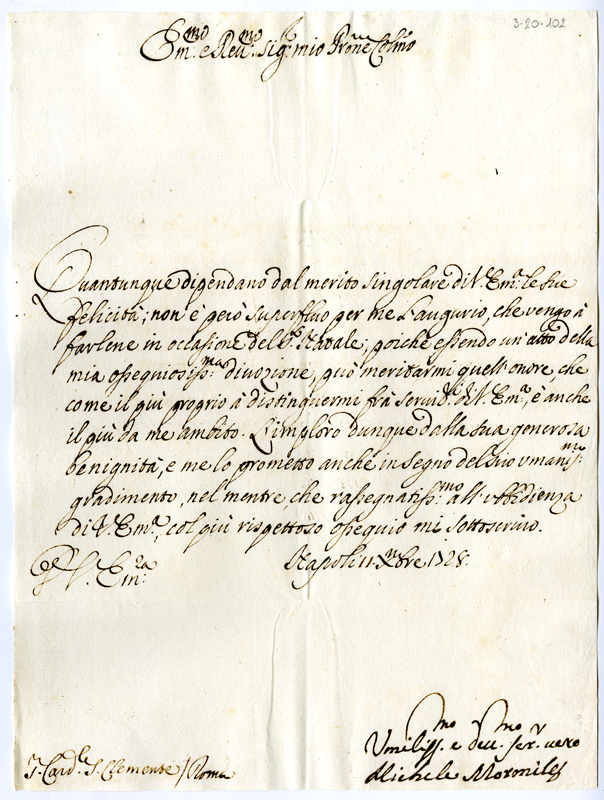 3-20-102
Em.mo e Reu.mo Sig.r mio Prone Colmo
Quantunque dipendano dal merito singolare di V. Em.a le sue
felicità; non è però superfluo per me l'augurio, che vengo à
farlene in occasione del S. Natale; poiche essendo un'atto della
mia ossequiosiss.ma divozione, può meritarmi quell'onore, che
come il più proprio à distinguermi frà seruid.ri di V. Em.a, è anche
il più da me ambito. L'imploro dunque dalla sua generosa
benignità, e me lo prometto anche in segno del suo vmaniss.mo
gradimento, nel mentre, che rassegnatiss.mo all'vbbidienza
di V. Em.a, col più rispettoso ossequio mi sottoscriuo.
Di V. Em.ra
Napoli 11 Xmbre 1728.
Vmiliss.mo e deu.mo ser.r uero
Michele Moroniles
S. Card.le S. Clemente / Roma